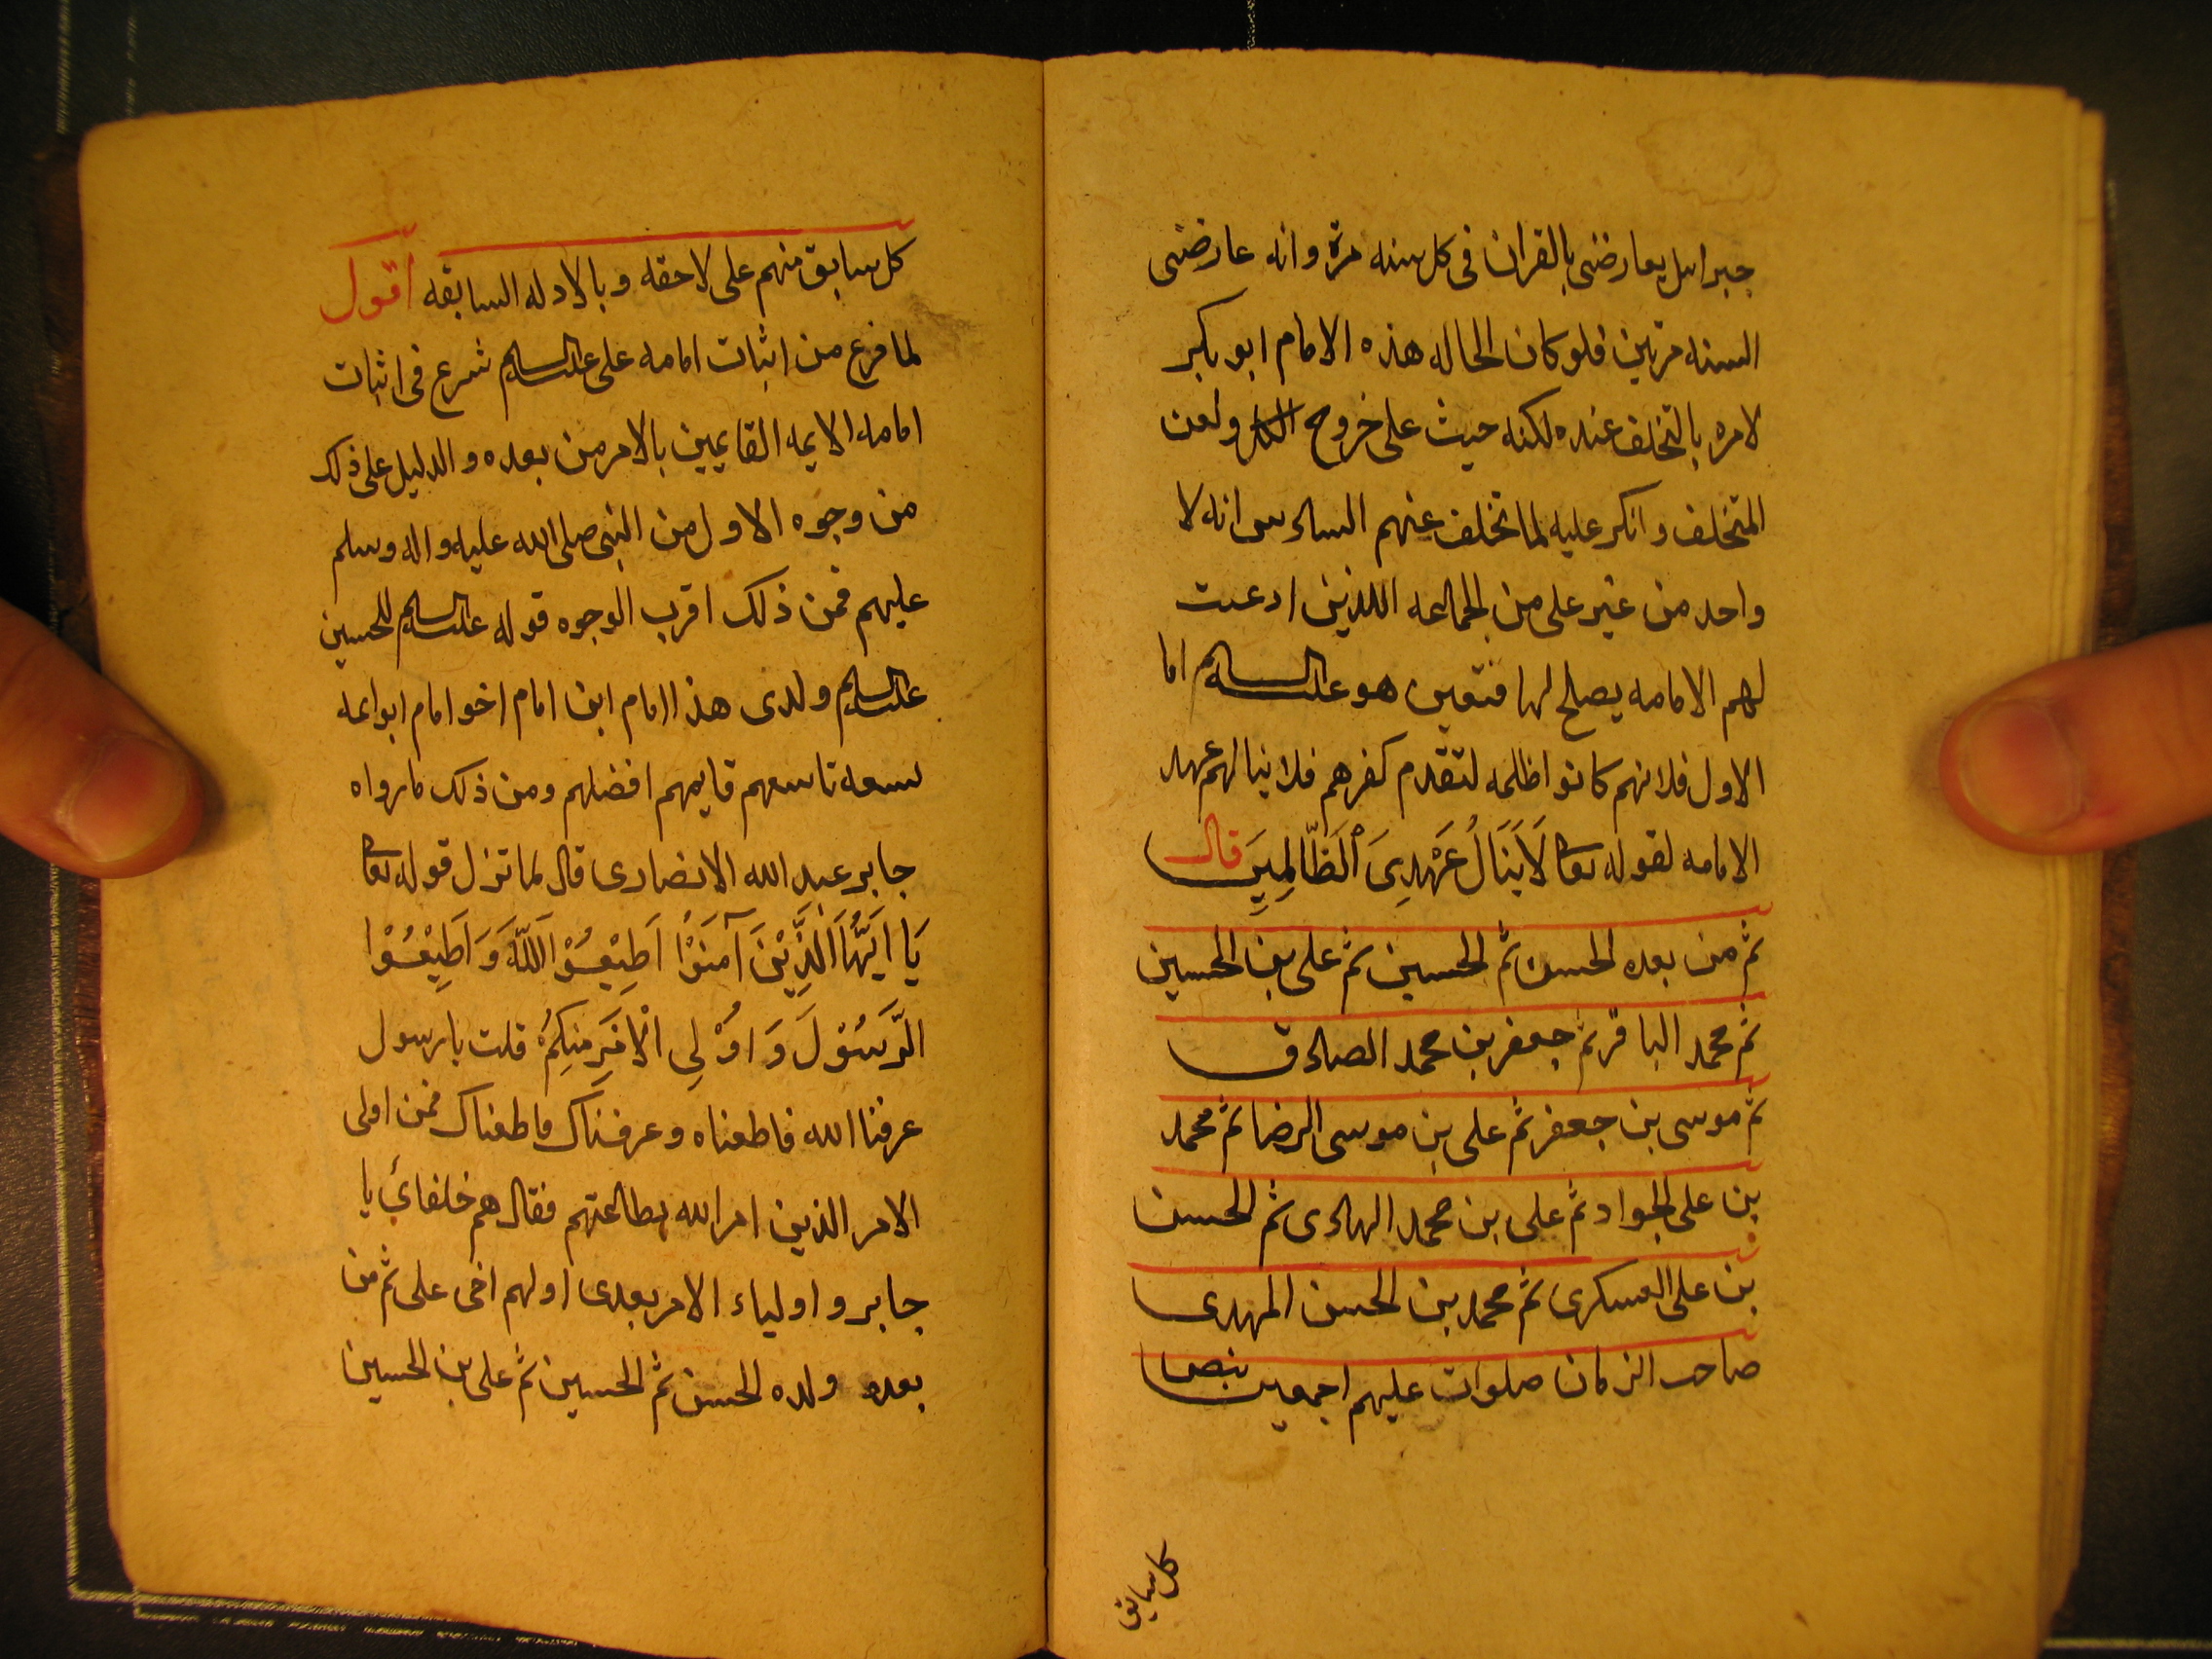 جبراىل يعارضنى بالقران فى كل سنه مرة وانه عارضنى
السنه مرتين فلو كان الحاله هذه الامام ابو بكر
لامره بالتخلف عنده لكنه حيث على خروج ولعن
المتخلف وانكر عليه لما تخلف عنهم انه لا
واحد من غير على من الجماعه اللذين ادعىت
لهم الامامه يصلح لها فتعين هو علىه السلام اما
الاول فلانهم كانوا ظلمه لتقدم كفرهم فلا ينالهم عهد
الامامه لقوله تعا لَا يَنَالُ عَهْدِىَ ٱلظَّالِمِينَ قال
ثم من بعده الحسن ثم الحسين ثم على بن الحسين
ثم محمد الباقر ثم جعفر بن محمد الصادق
ثم موسى بن جعفر ثم على بن موسى الرضا ثم محمد
بن على الجواد ثم على بن محمد الهادى ثم الحسن
بن على العسكرى ثم محمد بن الحسن المهدى
صاحب الزمان صلوات عليهم اجمعين بنص
كل سابق
كل سابق منهم على لاحقه وبالادله السابقه اقول
لما فرع من اثبات امامه على علىه السلام شرع فى اثبات
امامه الايمه القايمين بالامر من بعده والدليل على ذلك
من وجوه الاول من النبى صلى الله عليه واله وسلم
عليهم فمن ذلك اقرب الوجوه قوله علىه السلام للحسين
علىه السلام ولدى هذا امام ابن امام اخو امام ابو ايمه
تسعه تاسعهم قايمهم افضلهم ومن ذلك مارواه
جابر عبد الله الانصارى قال لما نزل قوله تعا
يَا اَيُّهَا الَّذِيْنَ آمَنَوْا اَطِيْعُوْا اللَّهَ وَ اَطِيْعُوْا
الرَّسُوْلَ وَ اُوْلِى الْاَمْرِ مِنْكُمْ قلت يا رسول
عرفنا الله فاطعناه وعرفناك فاطعناك فمن اولى
الامر الذين امر الله بطاعتهم فقال هم خلفائى يا
جابر واولياء الامر بعدى اولهم اخى على ثم من
بعده ولده الحسن ثم الحسين ثم على بن الحسين